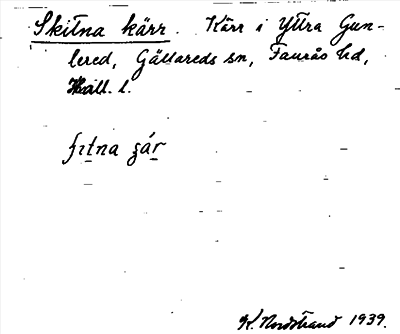 Skitna kärr. Kärr i Yttra Gun-
lered, Gällareds sn, Faurås hd,
Hall. l.
ʃɪtna
K. Nordstrand 1939.